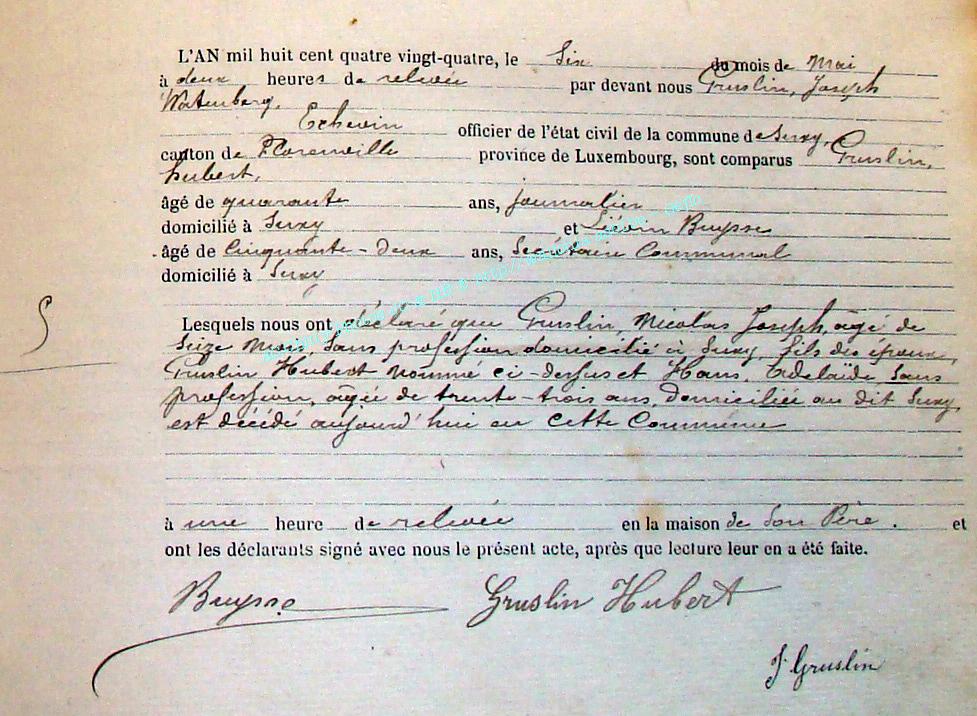 L'AN mil huit cent quatre vingt-quatre, le Six du mois de Mai
à deux heures de relevée par devant nous Gruslin, Joseph
Watenberg,
Echevin officier de l'état civil de la commune de Suxy,
canton de Florenville province de Luxembourg, sont comparus Gruslin,
hubert,
âgé de quarante ans, journalier
domicilié à Suxy et Liévin Buysse
âgé de Cinquante-Deux ans, Secrétaire Communal
domicilié à Suxy
5
Lesquels nous ont déclaré que Gruslin, Nicolas Joseph, âgé de
Seize Mois, Sans profession domicilié à Suxy, fils des époux,
Gruslin Hubert nommé ci-dessus et Hans, Adelaïde, Sans
profession, âgée de trente-trois ans, Domiciliée au dit Suxy,
est décédé aujourd'hui en cette Commune
à une heure de relevée en la maison de Son Père. et
ont les déclarants signé avec nous le présent acte, après que lecture leur en a été faite.
Buysse Gruslin Hubert
J Gruslin